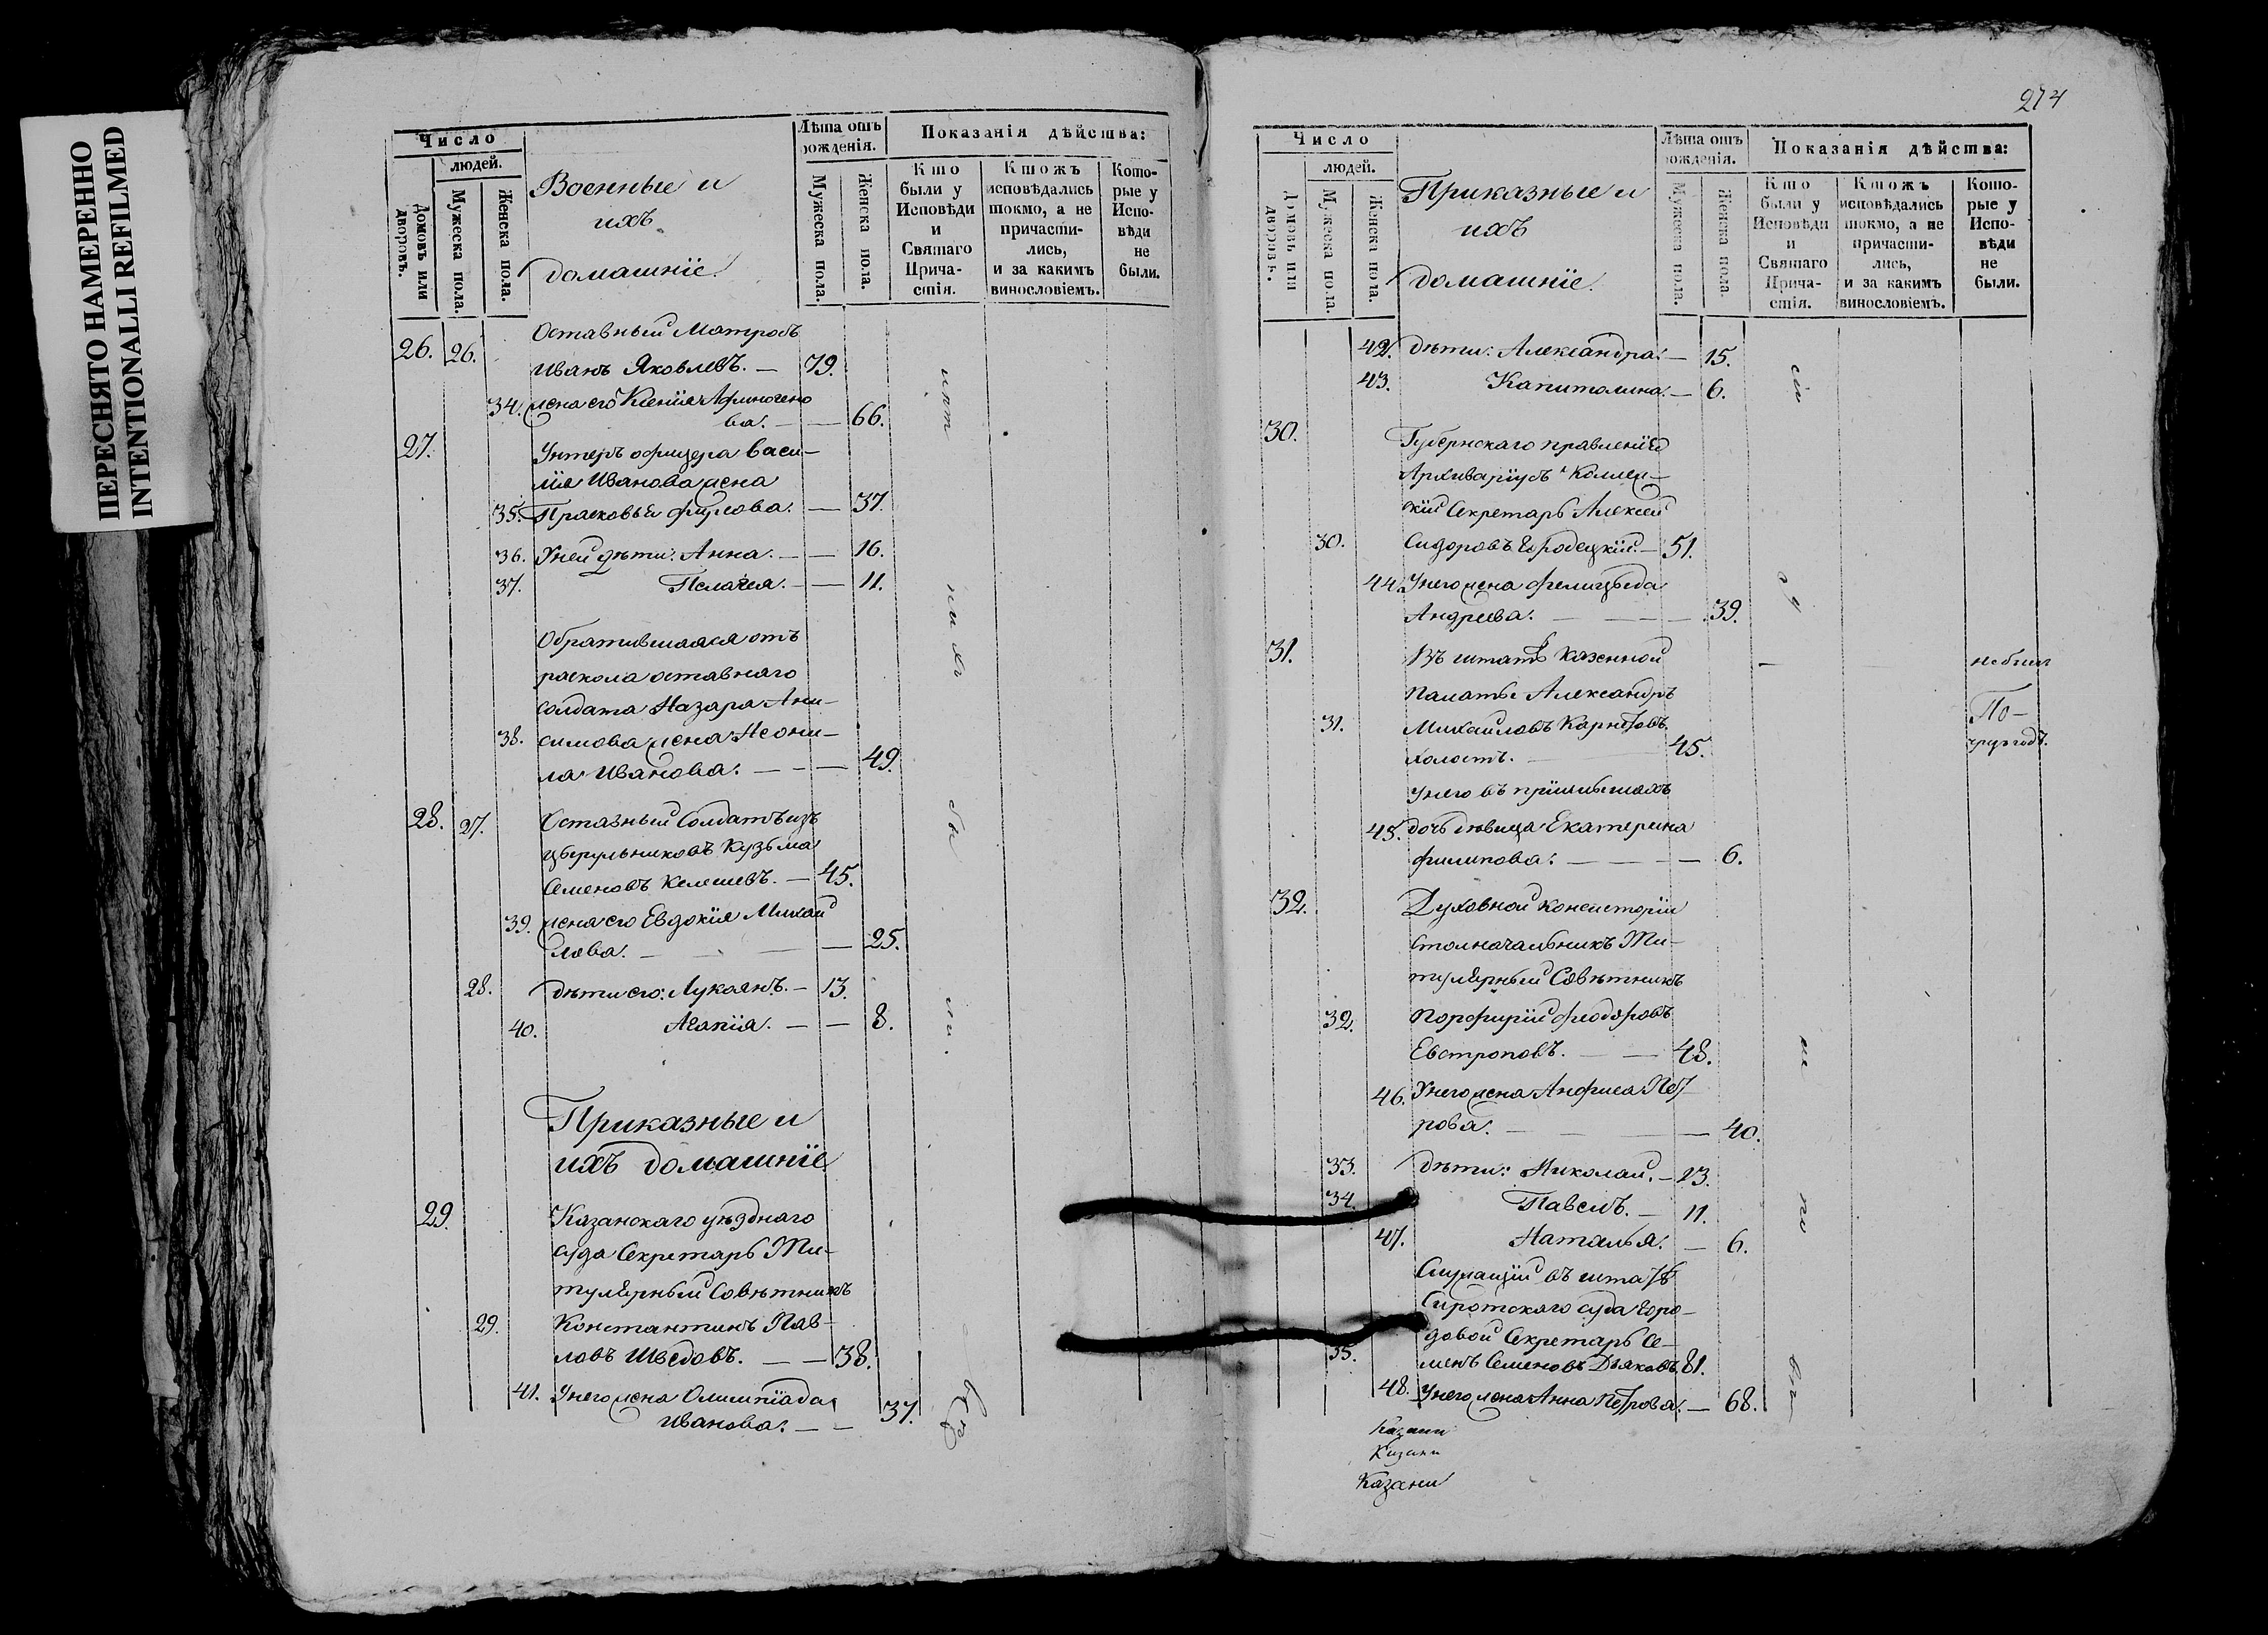 ПЕРЕСНЯТО НАМЕРЕННО
INTENTIONALLI REFILMED
Число
людей.
Домовъ или дворовъ.
Мужеска пола.
Женска пола.
Военные и
ихъ
домашніе
Лѣта отъ рожденія.
Мужеска пола.
Женска пола.
Показанія дѣйства:
Кто были у Исповѣди и Святаго Причастія.
Ктожъ исповѣдались токмо, а не причастились, и за какимъ винословіемъ.
Которые у Исповѣди не были.
26. 26. Оставный Матрозъ
Иванъ Яковлевъ. — 79.
34. жена его Ксенія Афиногено
ва. — — 66.
27. Унтеръ офицера Васи-
лія Иванова жена
35. Прасковья — 37.
36. Уней дѣти: Анна. — — 16.
37. Пелагея. — — 11.
Обратившаяся отъ
раскола оставнаго
солдата Назара Ани-
38. симова жена Неони-
ла Иванова. — — — 49.
28. 27. Оставный Солдатъ изъ
цырульниковъ Кузьма
Семеновъ Келешевъ. — 45.
39. жена его Евдокія Михай
лова. — — — 25.
28. дѣти его: Лукіянъ. — 13.
40. Агапія. — — 8.
Приказные и
ихъ домашніе
29. Казанскаго уѣзднаго
суда Секретарь Ти-
тулярный Совѣтникъ
29. Константинъ Пав-
ловъ Шведовъ. — — 38.
41. Унего жена Олимпіада
Иванова. — — 37.
274
Число
людей.
Домовъ или дворовъ.
Мужеска пола.
Женска пола.
Приказные и
ихъ
домашніе.
Лѣта отъ рожденія.
Мужеска пола.
Женска пола.
Показанія дѣйства:
Кто были у Исповѣди и Святаго Причастія.
Ктожъ исповѣдались токмо, а не причастились, и за какимъ винословіемъ.
Которые у Исповѣди не были.
42. дѣти: Александра. — 15.
43. Капитолина. — 6.
30. Губернскаго правленія
Архиваріусъ Коллеж-
скій Секретарь Алексей
30. Сидоровъ Городецкій. — 51.
44. Унего жена
Андреева. — — — 39.
31. Въ штатѣ Казенной — не были
Палаты Александръ По-
31. Михайловъ Карповъ
холостъ. — 45.
Унего въ
45. дочь дѣвица Екатерина
филипова. — — — 6.
32. Духовной консисторіи
столначальникъ Ти-
тулярный Совѣтникъ
32. Порфирій Феодоровъ
Евстроповъ. — — 48.
46. Унего жена Анфиса Пет
рова. — — — 40.
33. дѣти: Николай. — 13.
34. Павелъ. — 11.
47. Наталья. — 6.
Служащій въ штатѣ
Сиротскаго суда Горо-
довой Секретарь Се-
35. менъ Семеновъ Дьяковъ. 81.
48. Унего жена Анна Петрова. — 68.
Казани
Казани
Казани